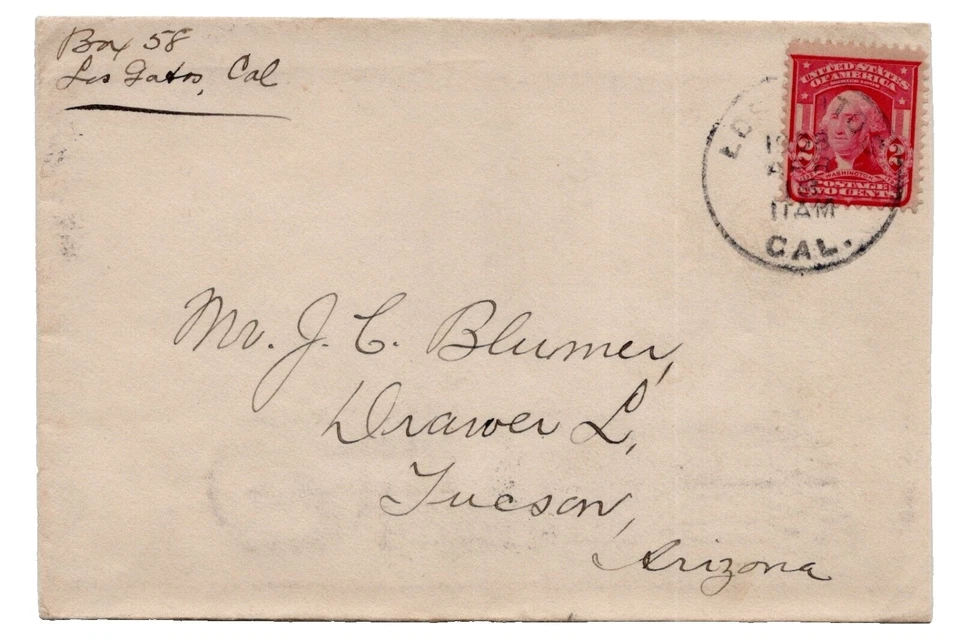 Box 58
Los Gatos, Cal
UNITED STATES
OF AMERICA
2 2
WASHINGTON
POSTAGE
TWO CENTS
LOS
11 AM
CAL.
Mr. J. C. Blumer,
Drawer L,
Tucson,
Arizona